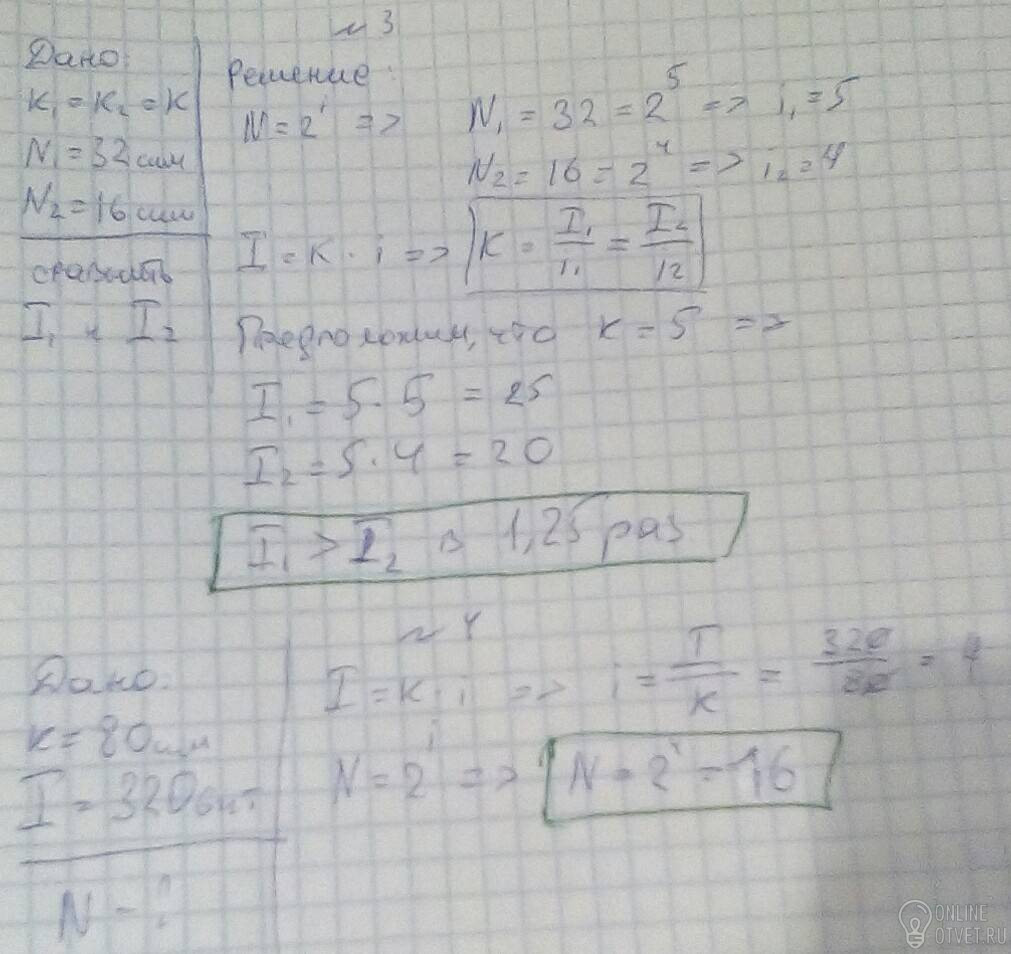 №3
Дано:
K₁ = K₂ = K
N₁ = 32 сим
N₂ = 16 сим
сравнить
I₁ и I₂
Решение:
N = 2ⁱ => N₁ = 32 = 2⁵ => i₁ = 5
N₂ = 16 = 2⁴ => i₂ = 4
I = K · i => K = I₁/i₁ = I₂/i₂
Предположим, что K = 5 =>
I₁ = 5 · 5 = 25
I₂ = 5 · 4 = 20
I₁ > I₂ в 1,25 раз
№4
Дано:
K = 80 сим
I = 320 бит
N - ?
I = K · i => i = I/K = 320/80 = 4
N = 2ⁱ => N = 2ⁱ = 16
ONLINE
OTVET.RU